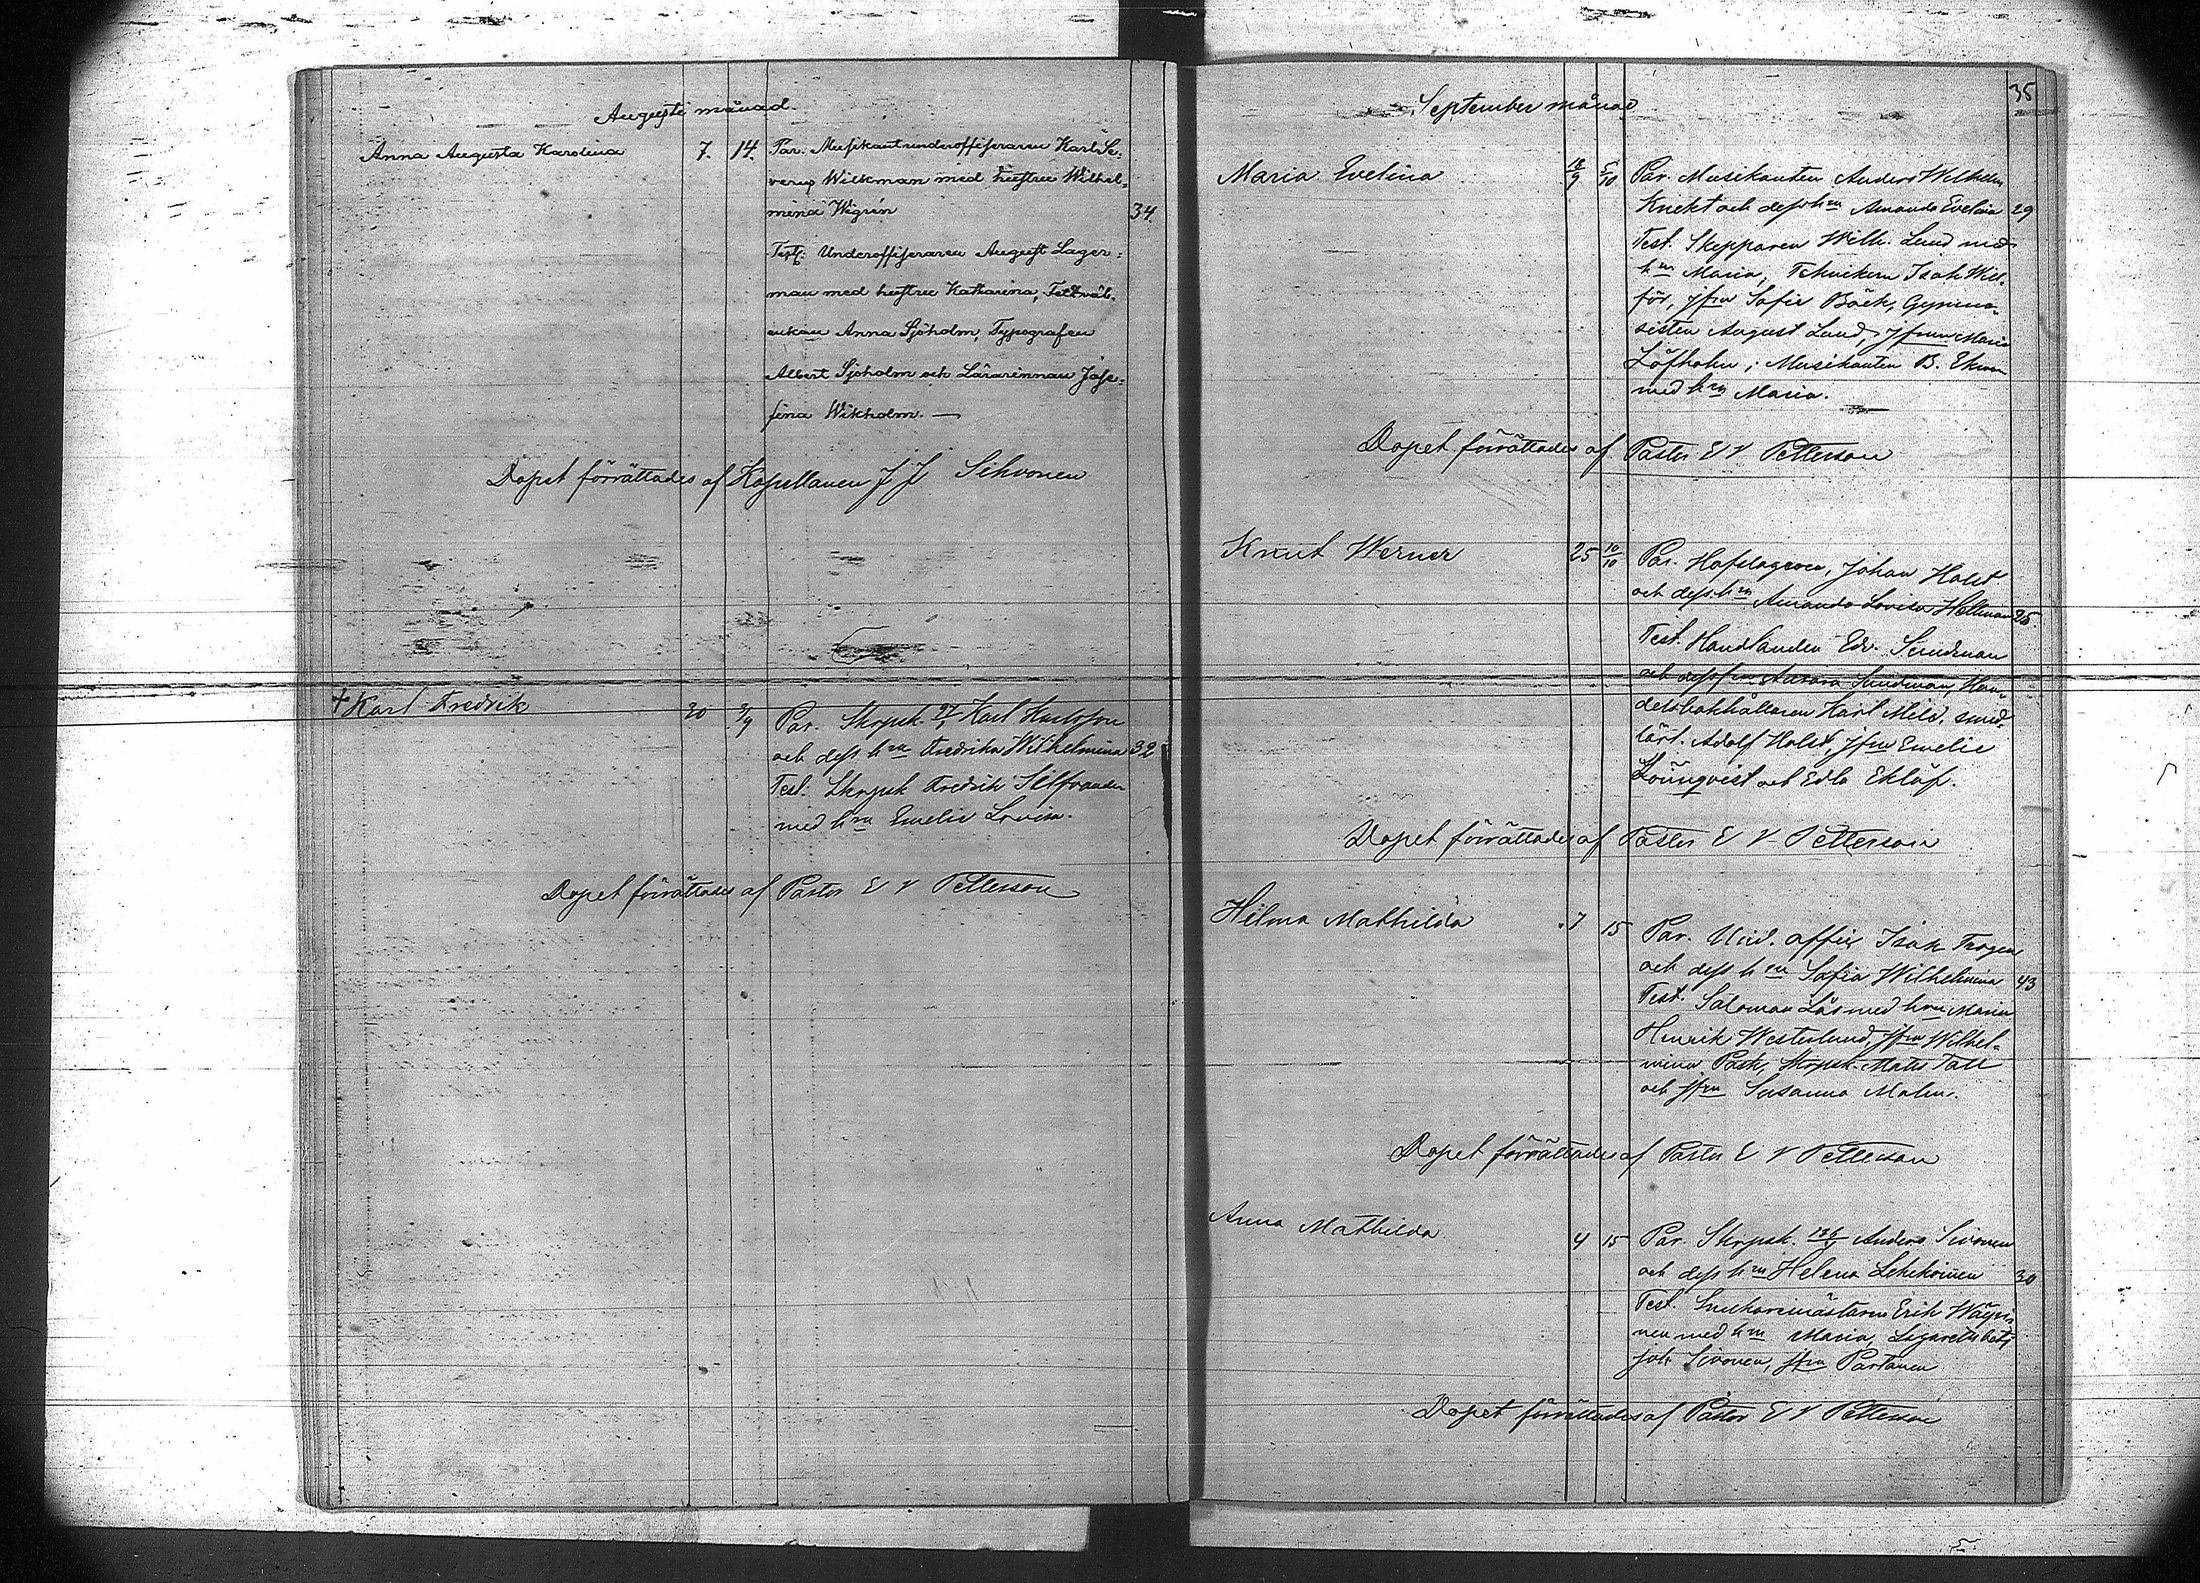 Augusti månad
Anna Augusta Karolina 7. 14. Par. Musikantunderofficeraren Karl Se-
verus Wickman med hustru Wilhel-
mina Wigrén 34.
Test: Underofficeraren August Lager-
man med hustru Katharina,
enkan Anna Sjöholm, Typografen
Albert Sjöholm och Lärarinnan Jose-
fina Wikholm. —
Dopet förrättades af Kapellanen J J Sihvonen
+ Karl Fredrik 20 2/9 Par. Skrpsk Karl Karlsson
och dess h:ru Fredrika Wilhelmina 32
Test. Skrpsk Fredrik Silfvander
med h:ru Emelie Lovisa.
Dopet förrättades af Pastor E V Petterson
35
September månad
Maria Evelina 18/9 5/10 Par. Musikanten Anders Wilhelm
Knekt och dess h:ru Amanda Evelina 29
Test. Skepparen Wilh. Lund med
h:ru Maria, Isak Will-
för, jfru Sofie Bäck, Gymna-
sisten August Lund, Jfrun Maria
Löfholm; Musikanten B. Ekman
med h:ru Maria.
Dopet förrättades af Pastor E V Petterson
Knut Werner 25 10/10 Par. Hofslagaren, Johan Holst
och dess h:ru Amanda Lovisa Hellman 25.
Test. Handlanden Edv. Sundman
och dess fru Aurora Sundman, Han-
delsbokhållaren Karl smed-
lärl. Adolf Holst, Jfru Emelie
Lönnqvist och Edla Eklöf.
Dopet förrättades af Pastor E V Petterson
Hilma Mathilda 7 15 Par. Und. offic Isak Trogen
och dess h:ru Sofia Wilhelmina 43
Test. Salomon Lås med h:ru Maria
Henrik Westerlund, Jfru Wilhel-
mina Pask, Skrpsk. Mats Tall
och jfru Susanna Malm.
Dopet förrättades af Pastor E V Petterson
Anna Mathilda 4 15 Par. Skrpsk. Anders Sivonen
och dess h:ru Helena 30
Test. Snickaremästaren Erik Wäyri-
nen med h:ru Maria,
Joh Sivonen, jfru Partanen
Dopet förrättades af Pastor E V Petterson